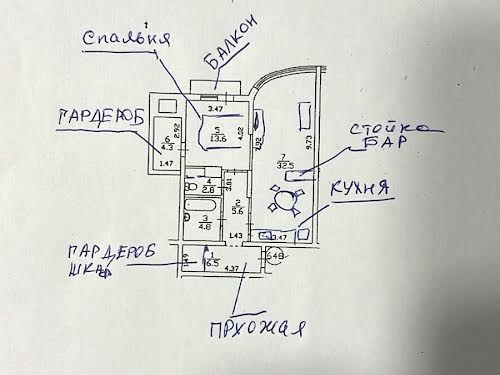 Спальня
БАЛКОН
3.47
ГАРДЕРОБ
6
4.3
2.92
1.47
5
13.6
4.02
7.92
9.73
7
32.5
СТОЙКА
БАР
КУХНЯ
4
2.8
3.81
2
5.6
3
4.6
1.43
3.47
ГАРДЕРОБ
ШКАФ
1.49
1
6.5
4.37
648
ПРХОЖАЯ